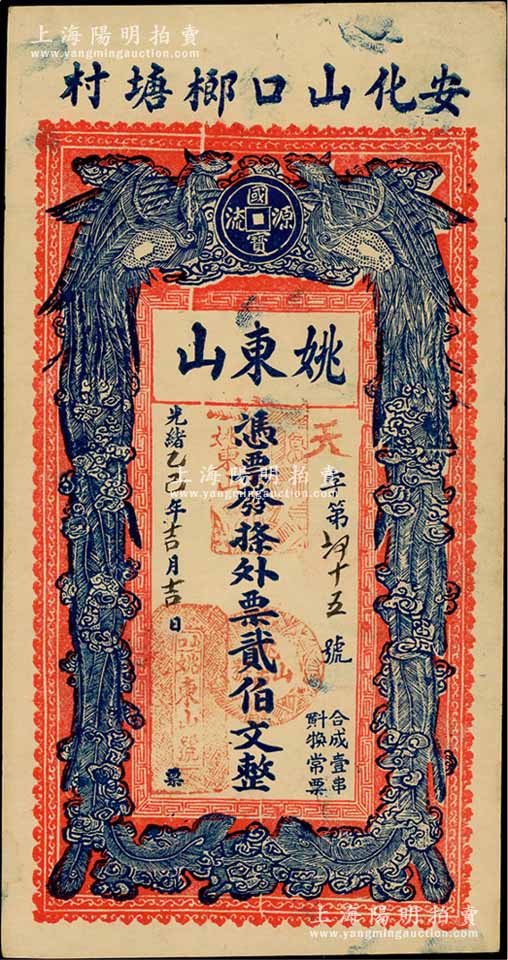 上海陽明拍賣
www.yangmingauction.com
安化山口榔塘村
國寶源流
姚東山
天字第 十五號
合成壹串
斢換常票
憑票發條外票貳伯文整
光緒乙巳年吉月吉日
票
口姚東山號
上海陽明拍賣
www.yangmingauction.com
上海陽明拍賣
www.yangmingauction.com